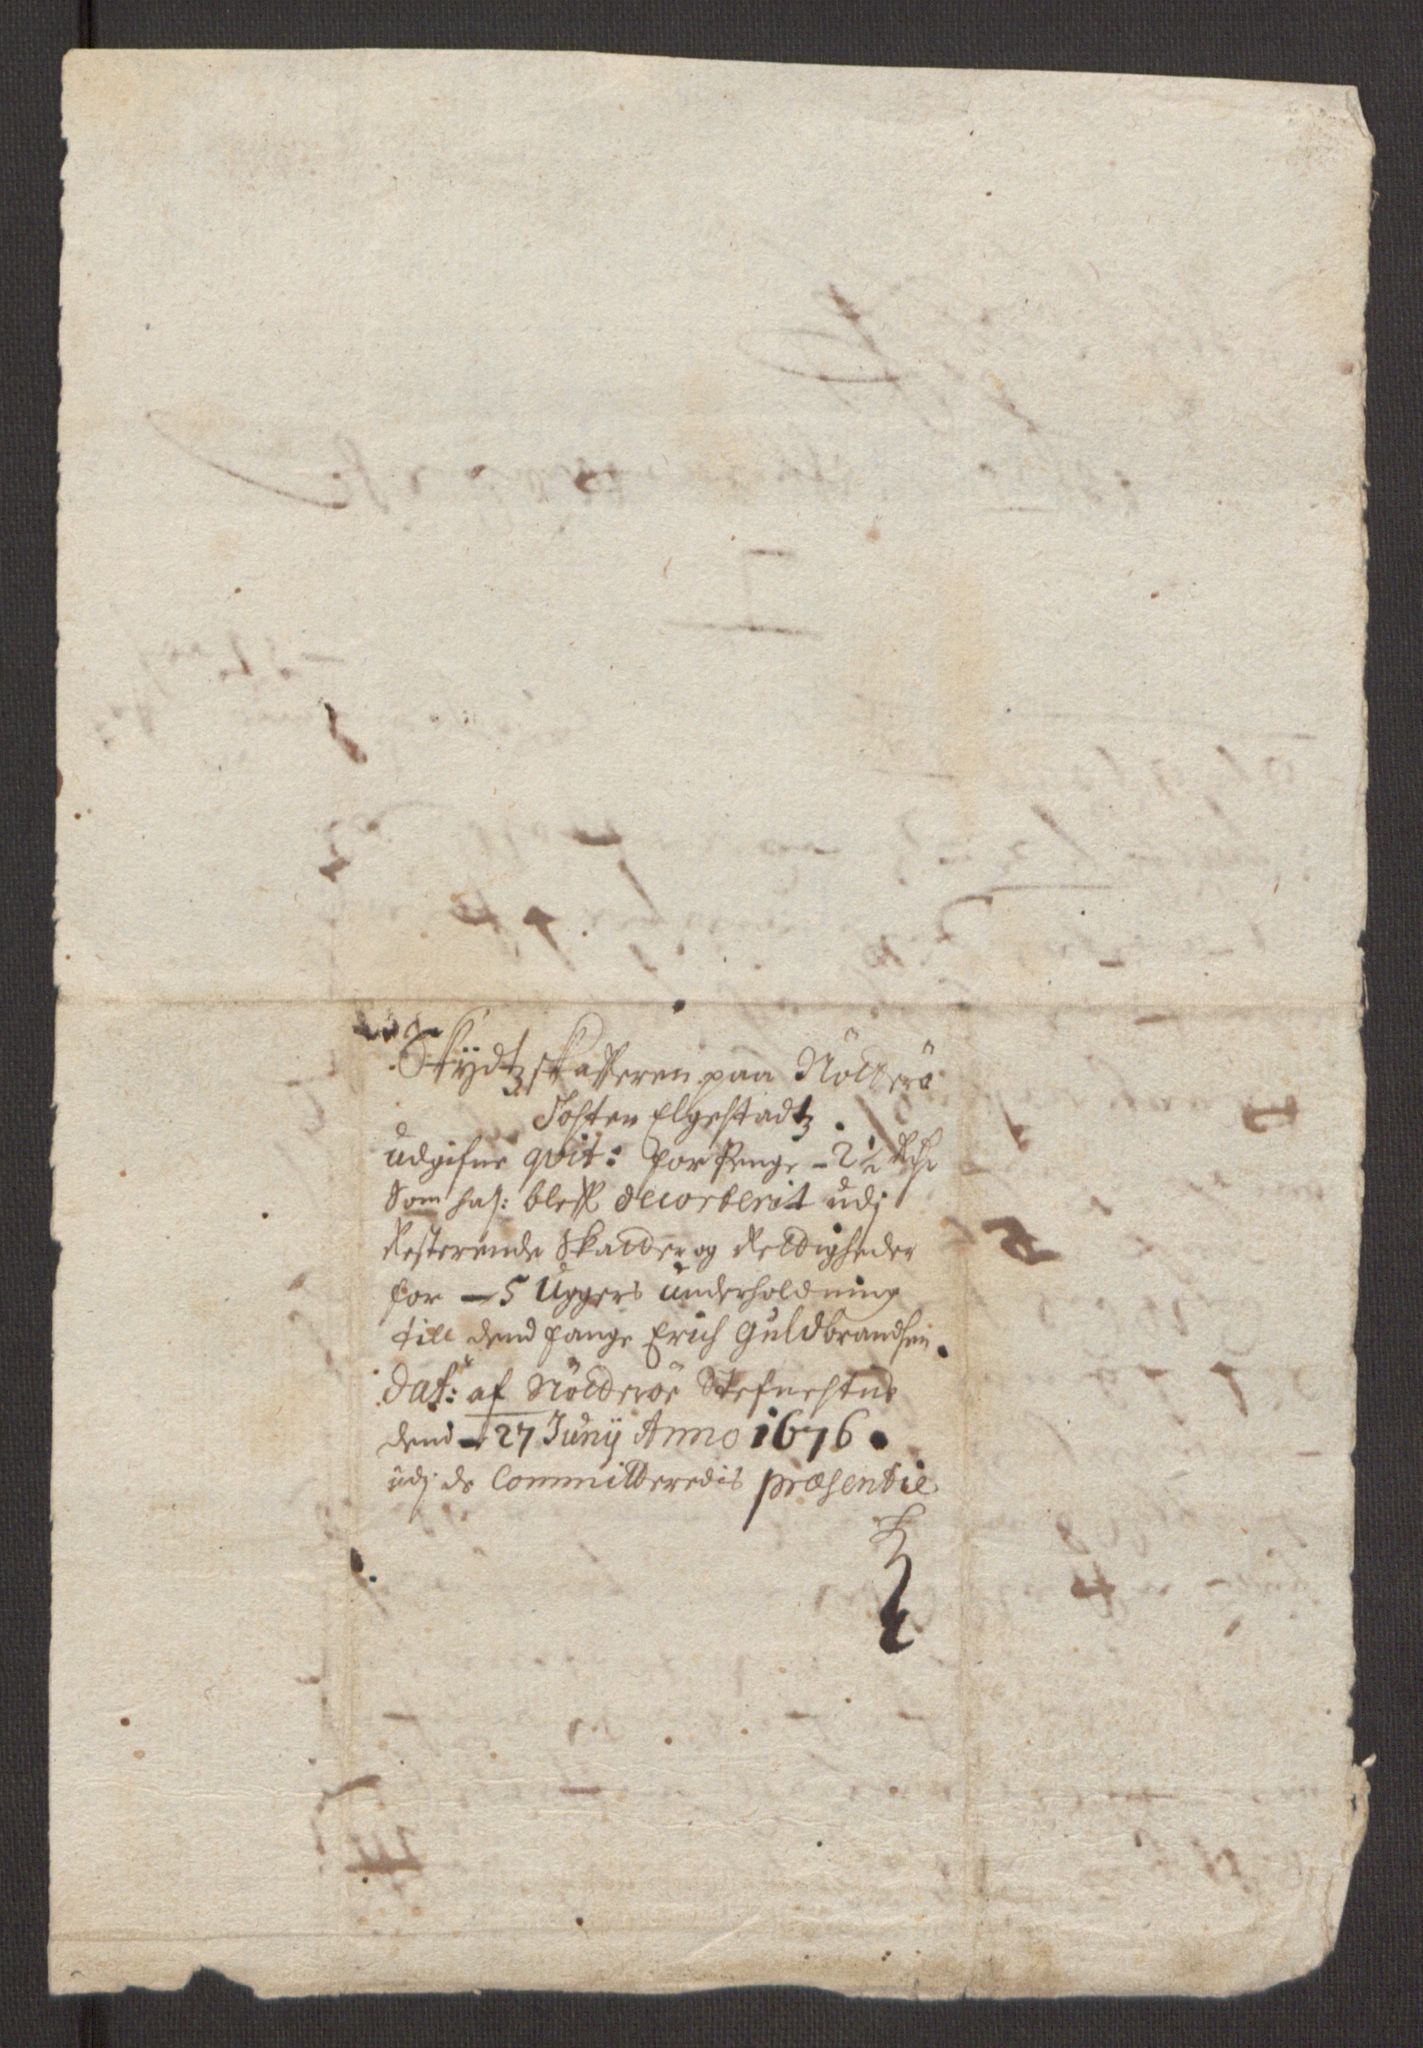 Skydtzskafferen paa Nötterö
Josten Elgestadtz
udgifne qvit: for Penge - 2½ Rdr
Som haf: bleff decorterit udj
Resterende Skatter og Rettigheder
for - 5 Uggers underholdning
till dend fange Erich Guldbrandsen.
Dat: af Nötteröe Stefnestue
dend - 27 Junij Anno 1676.
udj de Committeredis præsentie